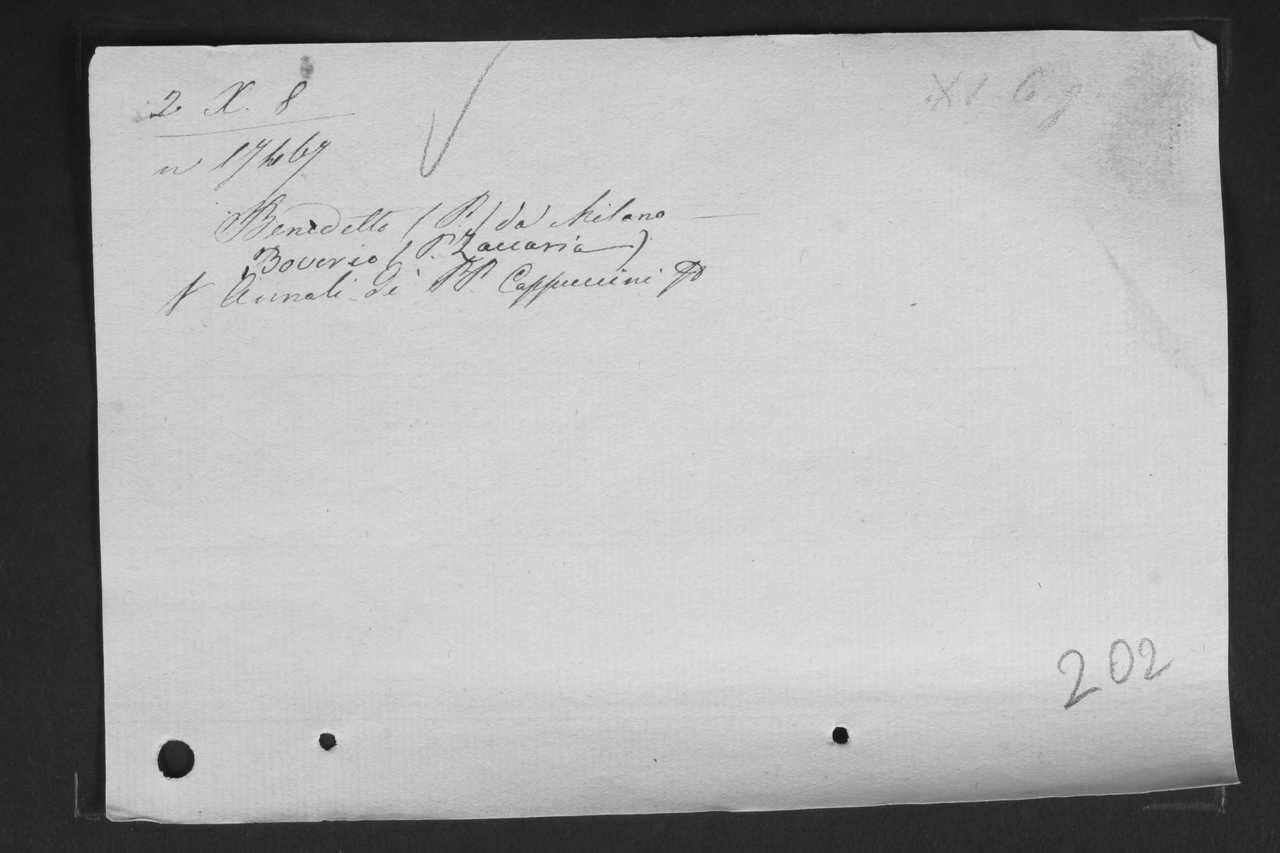 2 X. 8
XV. 6 9.
n 17467
Benedetto (P.) da Milano
Boverio (P. Zaccaria)
Annali de' PP. Cappuccini
202